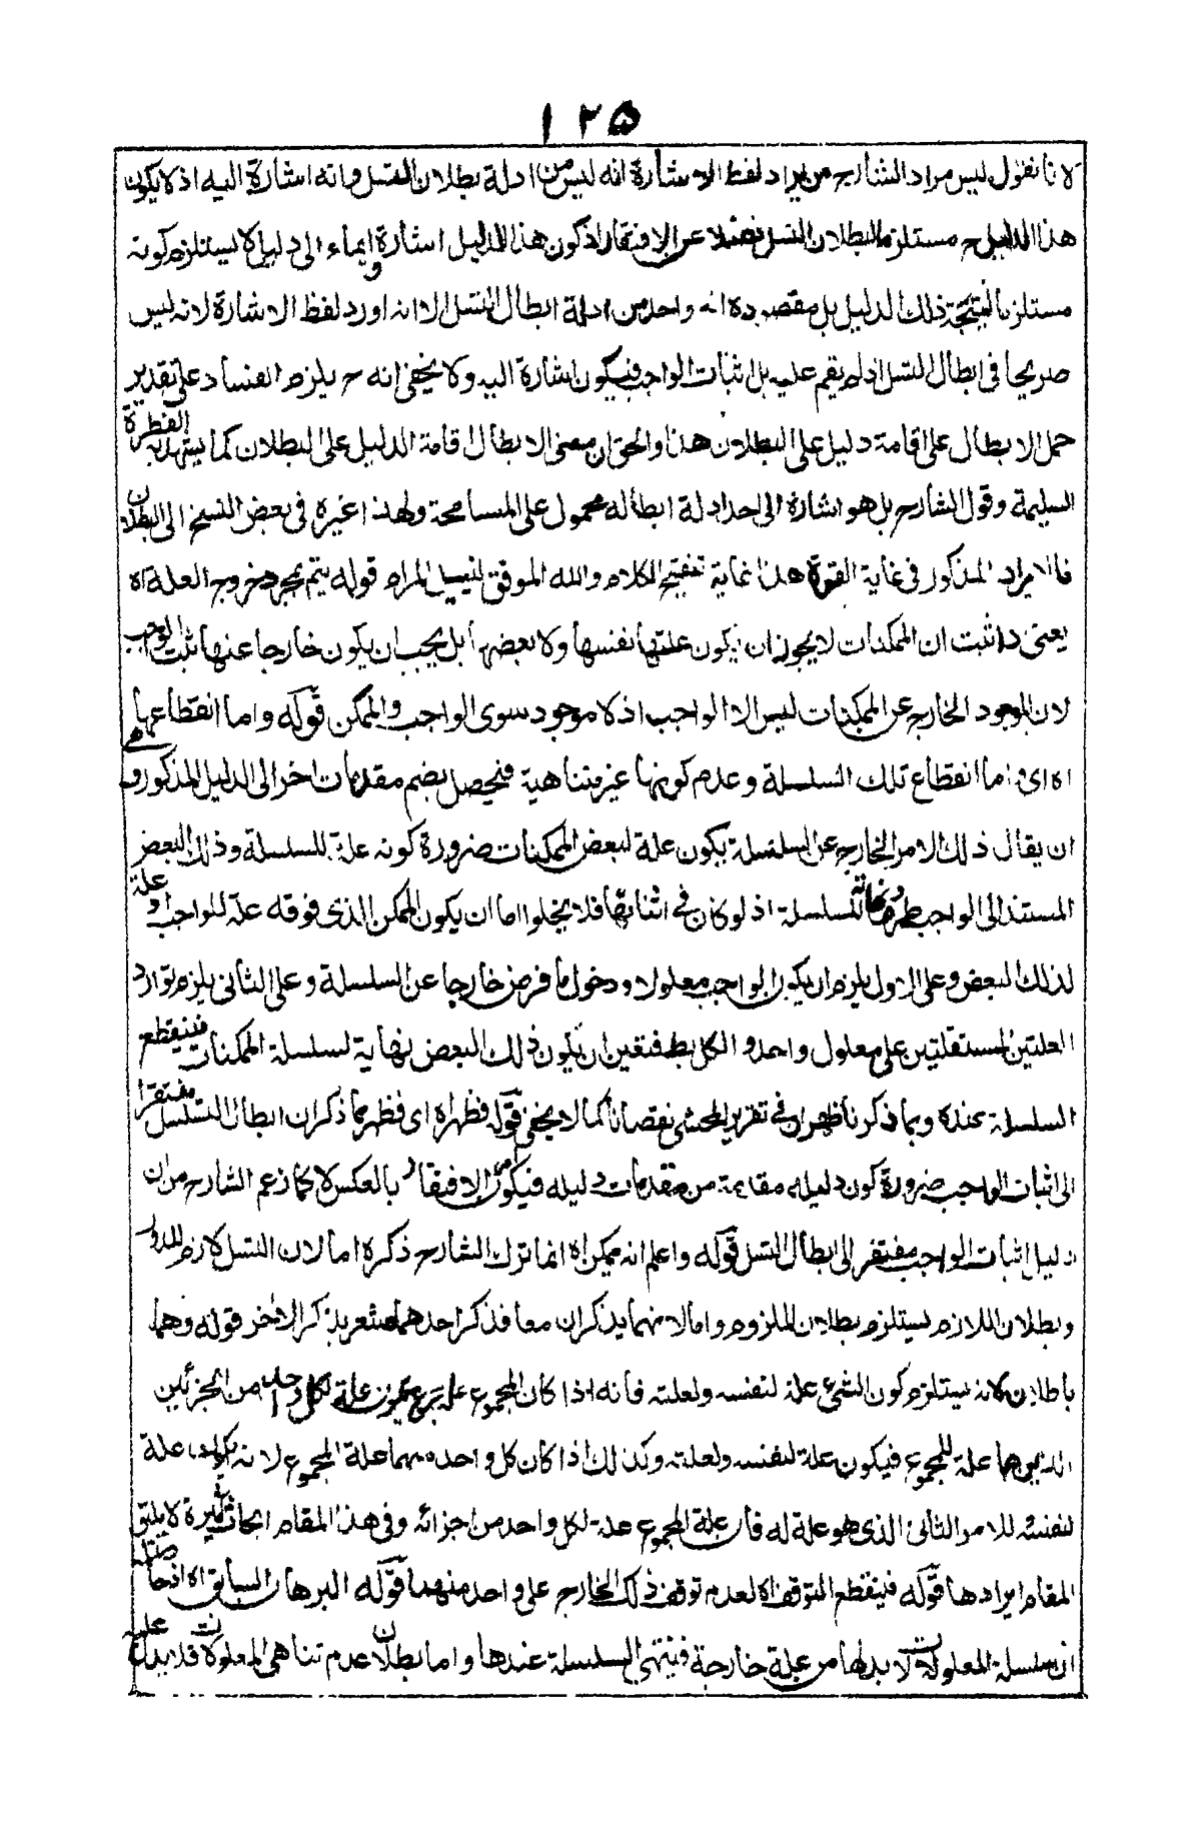 ١٢٥
لانا نقول ليس مراد الشارح من ايراد لفظ الاشارة انه ليس من ادلة بطلان التسل وانه اشارة اليه اذ لا يكون
هذا الدليل ح مستلزما لبطلان التسل فضلا عن الافتقار اذ كون هذا الدليل اشارة وايماء الى دليل لا يستلزم كونه
مستلزما لنتيجة ذلك الدليل بل مقصوده انه واحد من ادلة ابطال التسل الا انه اورد لفظ الاشارة لانه ليس
صريحا فى ابطال التسل اذ لم يقم عليه بل اثبات الواجب فيكون اشارة اليه ولا يخفى انه ح يلزم الفساد على تقدير
حمل الابطال على اقامة دليل على البطلان هذا والحق ان معنى الابطال اقامة الدليل على البطلان كما يشهد به الفطرة
السليمة وقول الشارح بل هو اشارة الى احد ادلة ابطاله محمول على المسامحة ولهذا غيره فى بعض النسخ الى البطلان
فالايراد المذكور فى غاية القوة هذا غاية تنقيح الكلام والله الموفق لتيسير المرام قوله يتم بمجرد خروج العلة اه
يعنى اذا ثبت ان الممكنات لا يجوز ان يكون علتها نفسها ولا بعضها بل يجب ان يكون خارجا عنها ثبت الواجب
لان الموجود الخارج عن الممكنات ليس الا الواجب اذ لا موجود سوى الواجب والممكن قوله واما انقطاعها
اه اى اما انقطاع تلك السلسلة وعدم كونها غير متناهية فيحصل بضم مقدمات اخر الى الدليل المذكور وهى
ان يقال ذلك الامر الخارج عن السلسلة يكون علة لبعض الممكنات ضرورة كونه علة للسلسلة وذلك البعض
المستند الى الواجب طرف ونهاية للسلسلة اذ لو كان فى اثنائها فلا يخلوا اما ان يكون الممكن الذى فوقه علة للواجب او علة
لذلك البعض وعلى الاول يلزم ان يكون الواجب معلولا ودخول ما فرض خارجا عن السلسلة وعلى الثانى يلزم توارد
العلتين المستقلتين على معلول واحد والكل بط فتعين ان يكون ذلك البعض نهاية لسلسلة الممكنات فينقطع
السلسلة عنده وبما ذكرنا ظهر ان فى تقرير المحشى نقصانا كما لا يخفى قوله فظهر اه اى فظهر مما ذكر ان ابطال التسلسل مفتقر
الى اثبات الواجب ضرورة كون دليله مقدمة من مقدمات دليله فيكون امر الافتقار بالعكس لا كما زعم الشارح من ان
دليل اثبات الواجب مفتقر الى ابطال التسل قوله واعلم انه يمكن اه انما ترك الشارح ذكره اما لان التسل لازم للدور
وبطلان اللازم يستلزم بطلان الملزوم واما لانهما يذكران معا فذكر احدهما مشعر بذكر الاخر قوله وهما
باطلان لانه يستلزم كون الشىء علة لنفسه ولعلته فانه اذا كان المجموع علة يكون علة لكل واحد من الجزئين
الذين هما علة للمجموع فيكون علة لنفسه ولعلته وكذلك اذا كان كل واحد منهما علة المجموع لانه يكون علة
لنفسه للامر الثانى الذى هو علة له فان علة المجموع علة لكل واحد من اجزائه وفى هذا المقام ابحاث كثيرة لا يليق
المقام ايرادها قوله فينقطع التوقف اه لعدم توقف ذلك الخارج على واحد منهما قوله البرهان السابق اه اذ حاصله
ان سلسلة المعلولات لا بد لها من علة خارجة فينتهى السلسلة عندها واما بطلان عدم تناهى المعلولات فلا يدل عليه